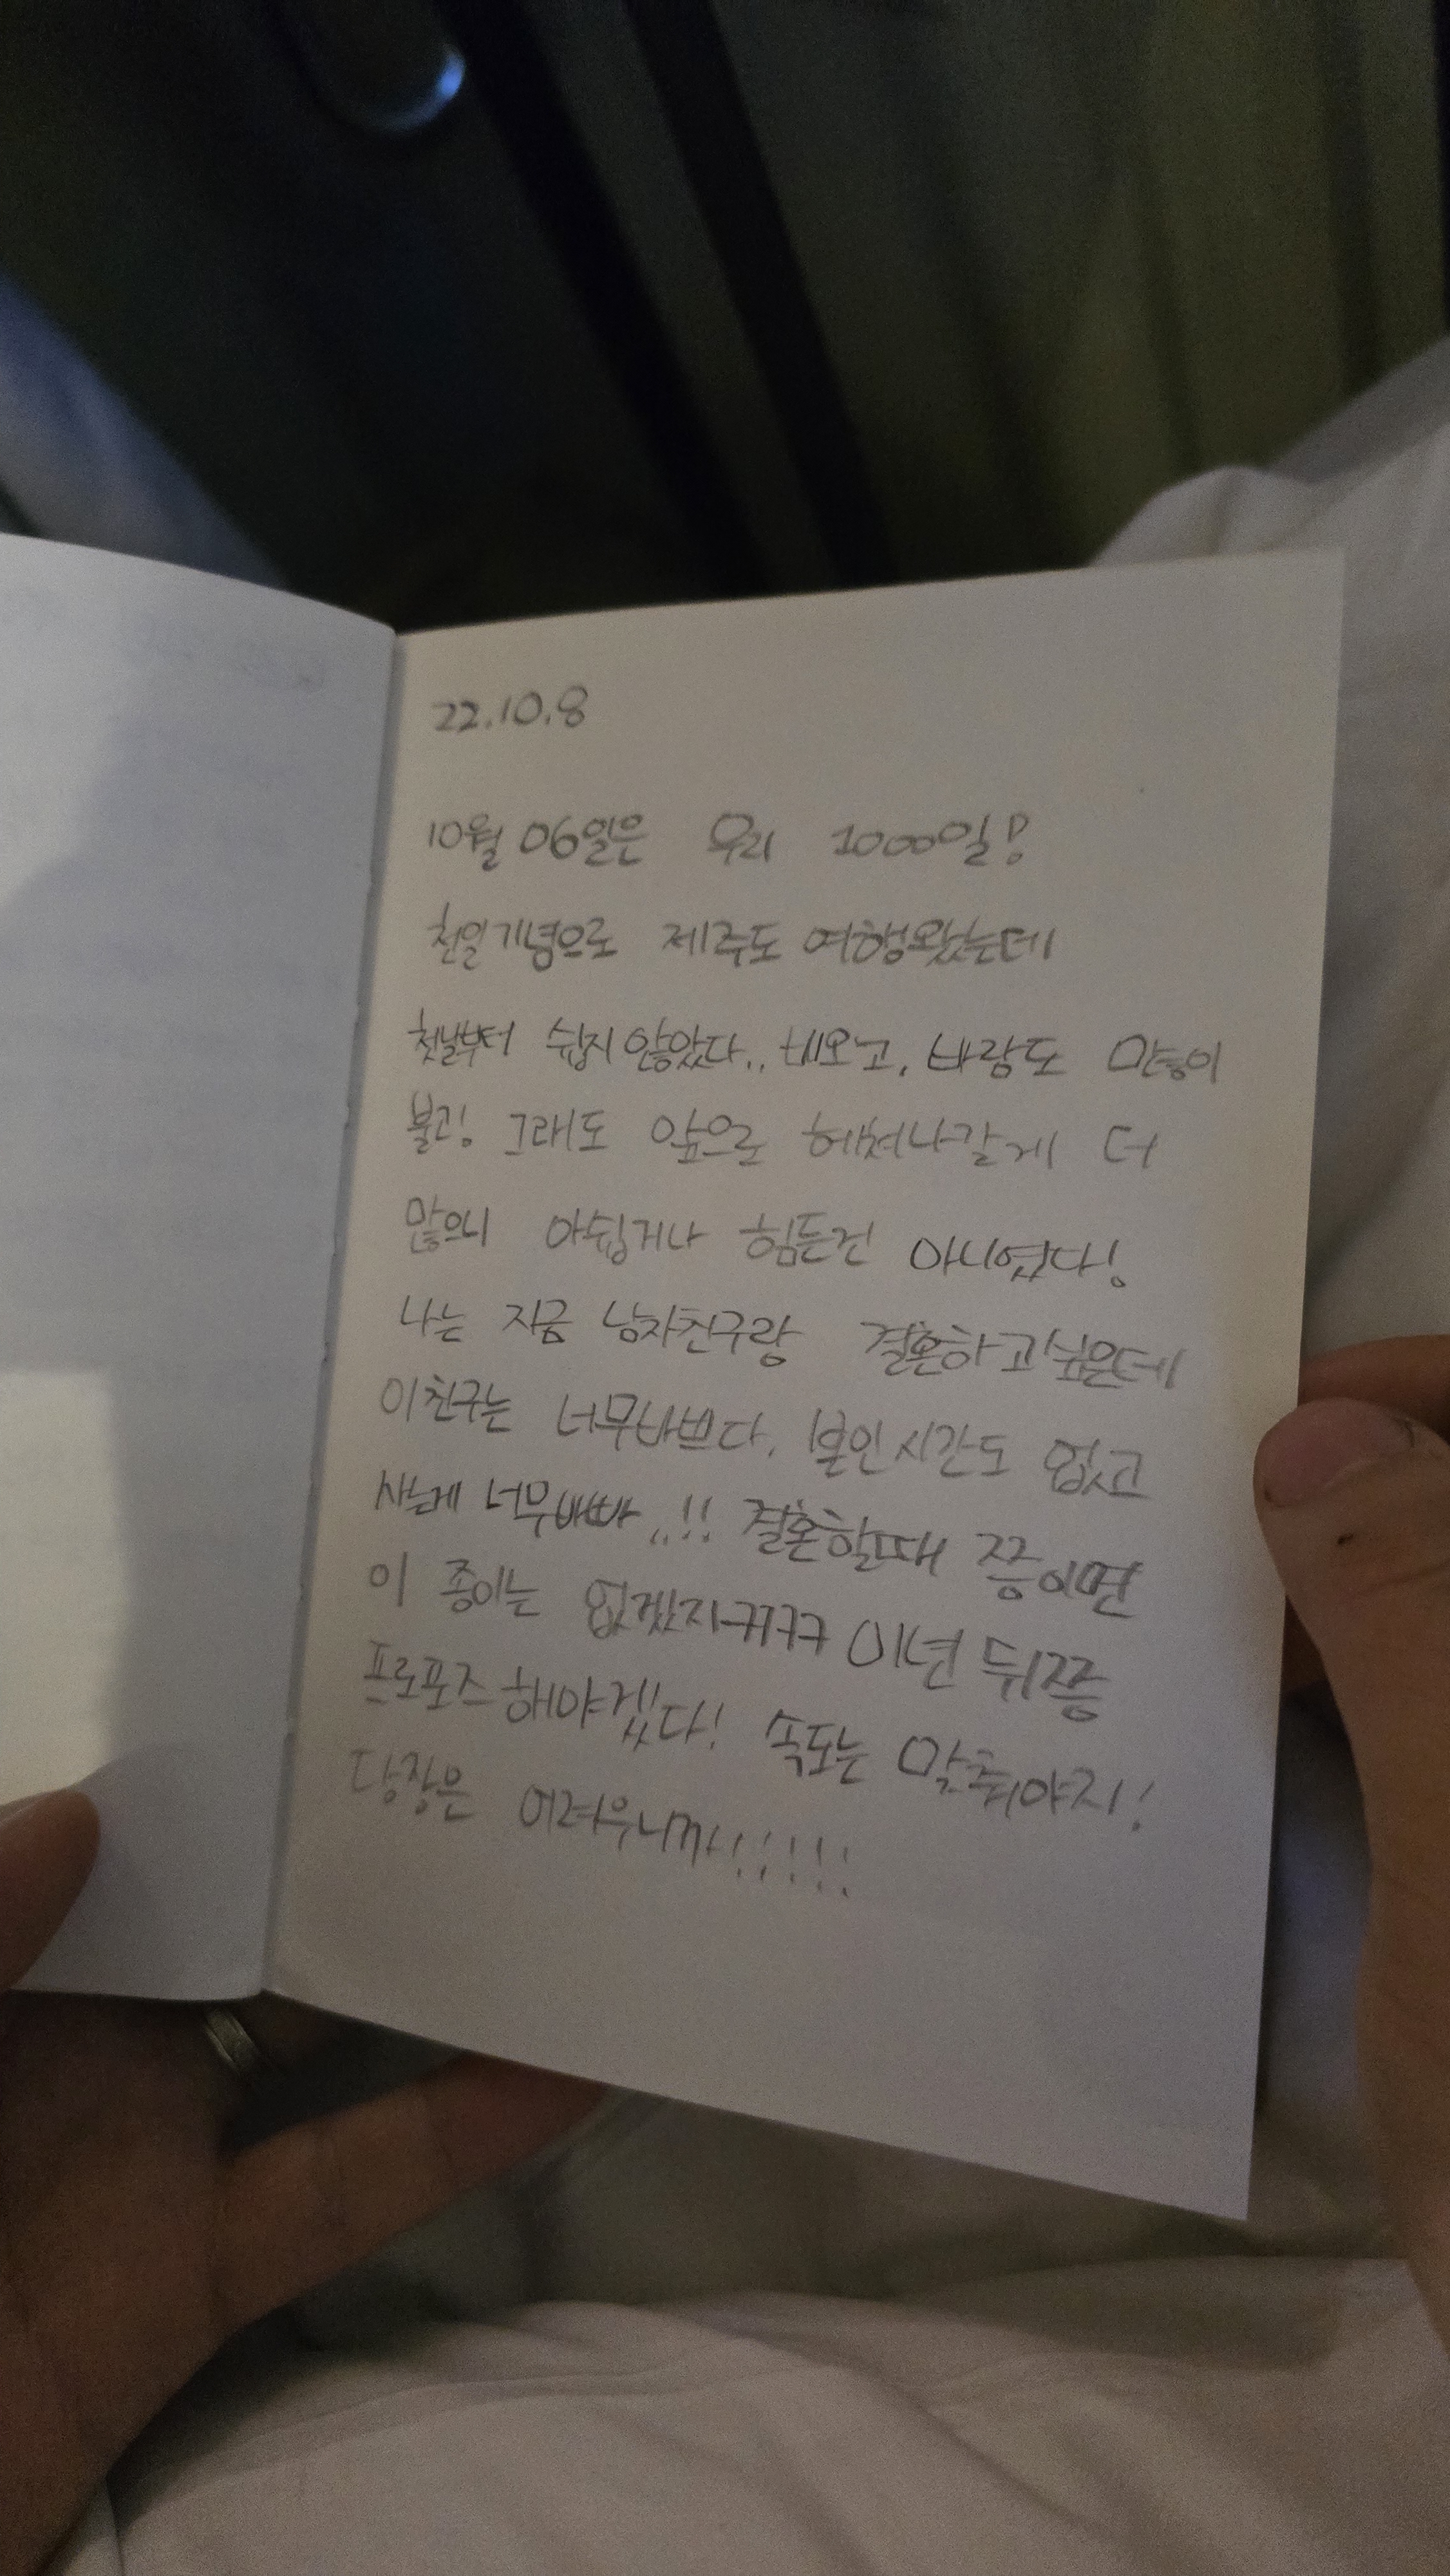 22.10.8
10월 06일은 우리 1000일!
천일기념으로 제주도 여행왔는데
첫날부터 쉽지않았다.. 비오고, 바람도 많이
불고! 그래도 앞으로 헤쳐나갈게 더
많으니 아쉽거나 힘든건 아니였다!
나는 지금 남자친구랑 결혼하고싶은데
이친구는 너무바쁘다. 본인시간도 없고
사는게 너무바빠..!! 결혼할때 쯤이면
이 종이는 없겠지ㅋㅋㅋㅋ 이년 뒤쯤
프로포즈해야겠다! 속도는 맞춰야지!
당장은 어려우니까!!!!!